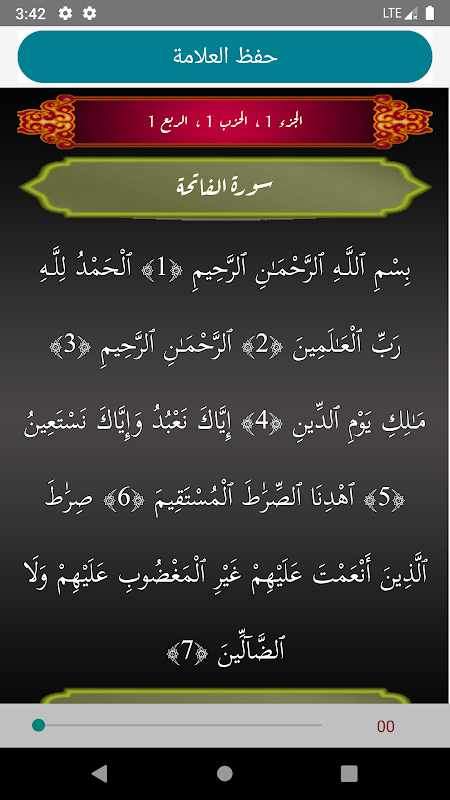 3:42 LTE
حفظ العلامة
الجزء 1 ، الحزب 1 ، الربع 1
سورة الفاتحة
بِسْمِ ٱللَّـهِ ٱلرَّحْمَـٰنِ ٱلرَّحِيمِ ﴿1﴾ ٱلْحَمْدُ لِلَّـهِ
رَبِّ ٱلْعَـٰلَمِينَ ﴿2﴾ ٱلرَّحْمَـٰنِ ٱلرَّحِيمِ ﴿3﴾
مَـٰلِكِ يَوْمِ ٱلدِّينِ ﴿4﴾ إِيَّاكَ نَعْبُدُ وَإِيَّاكَ نَسْتَعِينُ
﴿5﴾ ٱهْدِنَا ٱلصِّرَٰطَ ٱلْمُسْتَقِيمَ ﴿6﴾ صِرَٰطَ
ٱلَّذِينَ أَنْعَمْتَ عَلَيْهِمْ غَيْرِ ٱلْمَغْضُوبِ عَلَيْهِمْ وَلَا
ٱلضَّآلِّينَ ﴿7﴾
00